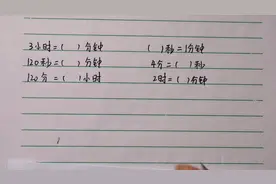 3小时=( )分钟 ( )秒=1分钟
120秒=( )分钟 4分=( )秒
120分=( )小时 2时=( )分钟